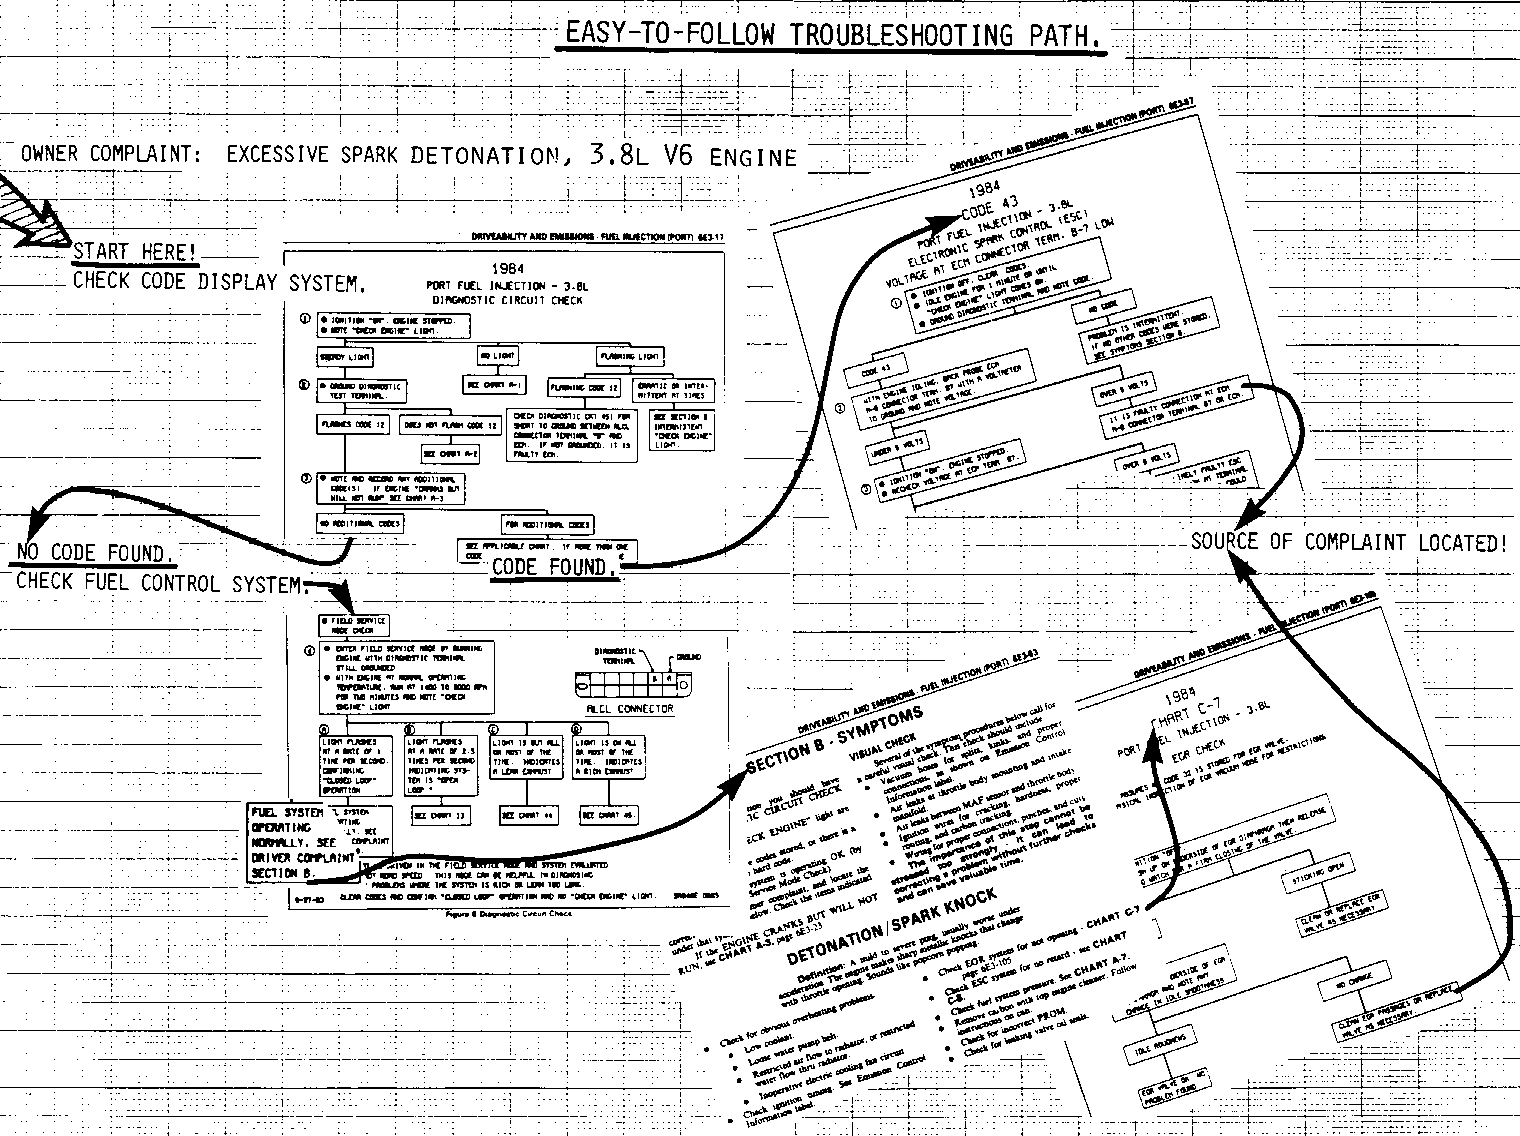 EASY-TO-FOLLOW TROUBLESHOOTING PATH.
OWNER COMPLAINT: EXCESSIVE SPARK DETONATION, 3.8L V6 ENGINE
START HERE!
CHECK CODE DISPLAY SYSTEM.
DRIVEABILITY AND EMISSIONS - FUEL INJECTION (PORT) 6E3-17
1984
PORT FUEL INJECTION - 3.8L
DIAGNOSTIC CIRCUIT CHECK
IGNITION "ON", ENGINE STOPPED.
NOTE "CHECK ENGINE" LIGHT.
STEADY LIGHT
NO LIGHT
FLASHING LIGHT
GROUND DIAGNOSTIC
TEST TERMINAL.
SEE CHART A-1
FLASHING CODE 12
ERRATIC OR INTER-
MITTENT AT TIMES
FLASHES CODE 12
DOES NOT FLASH CODE 12
CHECK DIAGNOSTIC CKT 451 FOR
SHORT TO GROUND BETWEEN ALCL
CONNECTOR TERMINAL "B" AND
ECM. IF NOT GROUNDED, IT IS
FAULTY ECM.
SEE SECTION B
INTERMITTENT
"CHECK ENGINE"
LIGHT.
SEE CHART A-2
NOTE AND RECORD ANY ADDITIONAL
CODE(S). IF ENGINE "CRANKS BUT
WILL NOT RUN" SEE CHART A-3
NO ADDITIONAL CODES
FOR ADDITIONAL CODES
SEE APPLICABLE CHART. IF MORE THAN ONE
CODE
CODE FOUND.
NO CODE FOUND.
CHECK FUEL CONTROL SYSTEM.
FIELD SERVICE
MODE CHECK
ENTER FIELD SERVICE MODE BY RUNNING
ENGINE WITH DIAGNOSTIC TERMINAL
STILL GROUNDED
WITH ENGINE AT NORMAL OPERATING
FOR TWO MINUTES AND NOTE "CHECK
ENGINE" LIGHT
DIAGNOSTIC
TERMINAL
GROUND
B A
ALCL CONNECTOR
LIGHT FLASHES
AT A RATE OF 1
TIME PER SECOND,
CONFIRMING
"CLOSED LOOP"
OPERATION
LIGHT FLASHES
AT A RATE OF 2.5
TIMES PER SECOND
INDICATING SYS-
TEM IS "OPEN
LOOP"
LIGHT IS OUT ALL
OR MOST OF THE
TIME. INDICATES
A LEAN EXHAUST
LIGHT IS ON ALL
OR MOST OF THE
TIME. INDICATES
A RICH EXHAUST
SEE CHART 13
SEE CHART 44
SEE CHART 45
FUEL SYSTEM
OPERATING
NORMALLY. SEE
DRIVER COMPLAINT
SECTION B.
CLEAR CODES AND CONFIRM "CLOSED LOOP" OPERATION AND NO "CHECK ENGINE" LIGHT.
Figure 6 Diagnostic Circuit Check
DRIVEABILITY AND EMISSIONS - FUEL INJECTION (PORT) 6E3-57
1984
CODE 43
PORT FUEL INJECTION - 3.8L
ELECTRONIC SPARK CONTROL (ESC)
VOLTAGE AT ECM CONNECTOR TERM. B-7 LOW
IGNITION OFF, CLEAR CODES
IDLE ENGINE FOR 1 MINUTE OR UNTIL
"CHECK ENGINE" LIGHT COMES ON.
GROUND DIAGNOSTIC TERMINAL AND NOTE CODE.
CODE 43
NO CODE
PROBLEM IS INTERMITTENT.
IF NO OTHER CODES WERE STORED,
SEE SYMPTOMS SECTION B
WITH ENGINE IDLING, BACK PROBE ECM
A-B CONNECTOR TERM. B7 WITH A VOLTMETER
TO GROUND AND NOTE VOLTAGE
OVER 6 VOLTS
IT IS FAULTY CONNECTION AT ECM
A-B CONNECTOR TERMINAL B7 OR ECM
UNDER 6 VOLTS
IGNITION "ON", ENGINE STOPPED.
RECHECK VOLTAGE AT ECM TERM. B7.
OVER 6 VOLTS
SOURCE OF COMPLAINT LOCATED!
DRIVEABILITY AND EMISSIONS - FUEL INJECTION (PORT) 6E3-63
SECTION B - SYMPTOMS
VISUAL CHECK
Several of the symptom procedures below call for
a careful visual check. This check should include
Vacuum hoses for splits, kinks, and proper
connections, as shown on Emission Control
Information label.
Air leaks at throttle body mounting and intake
manifold.
Air leaks between MAF sensor and throttle body
Ignition wires for cracking, hardness, proper
routing, and carbon tracking.
Wiring for proper connections, pinches, and cuts
The importance of this step cannot be
stressed too strongly - it can lead to
correcting a problem without further checks
and can save valuable time.
If the ENGINE CRANKS BUT WILL NOT
RUN, see CHART A-3, page 6E3-23
DETONATION/SPARK KNOCK
Definition: A mild to severe ping, usually worse under
acceleration. The engine makes sharp metallic knocks that change
with throttle opening. Sounds like popcorn popping.
Check for obvious overheating problems.
Low coolant.
Loose water pump belt
Restricted air flow to radiator, or restricted
water flow thru radiator.
Inoperative electric cooling fan circuit
Check ignition timing. See Emission Control
Information label
Check EGR system for not opening - CHART C-7
page 6E3-105
Check ESC system for no retard - see CHART
C-8.
Check fuel system pressure. See CHART A-7.
Remove carbon with top engine cleaner. Follow
instructions on can.
Check for incorrect PROM.
Check for leaking valve oil seals.
DRIVEABILITY AND EMISSIONS - FUEL INJECTION (PORT)
1984
CHART C-7
PORT FUEL INJECTION - 3.8L
EGR CHECK
STICKING OPEN
CLEAN OR REPLACE EGR
VALVE AS NECESSARY
NO CHANGE
CHANGE IN IDLE SMOOTHNESS
CLEAN EGR PASSAGES OR REPLACE
VALVE AS NECESSARY.
IDLE ROUGHENS
PROBLEM FOUND